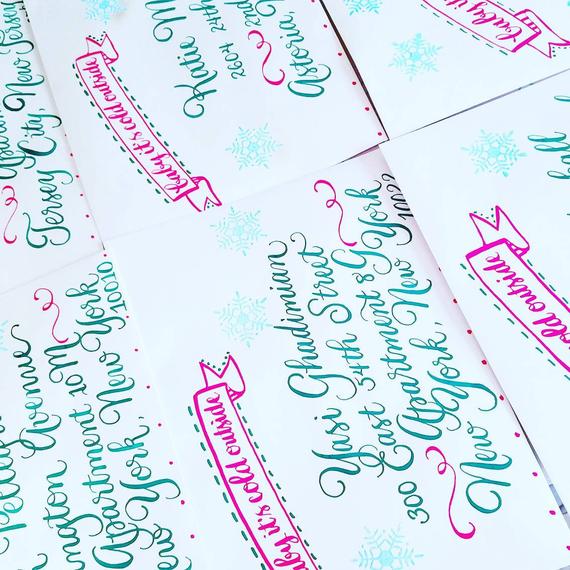 Jersey City, New Jersey
baby it's cold outside
Katie M
2604 24th
2nd
Astoria,
baby it's
Avenue
Apartment 10M
York, New York
baby it's cold outside
Yasi Ghadimian
300 East 54th Street
Apartment 8G
New York, New York
10022
cold outside